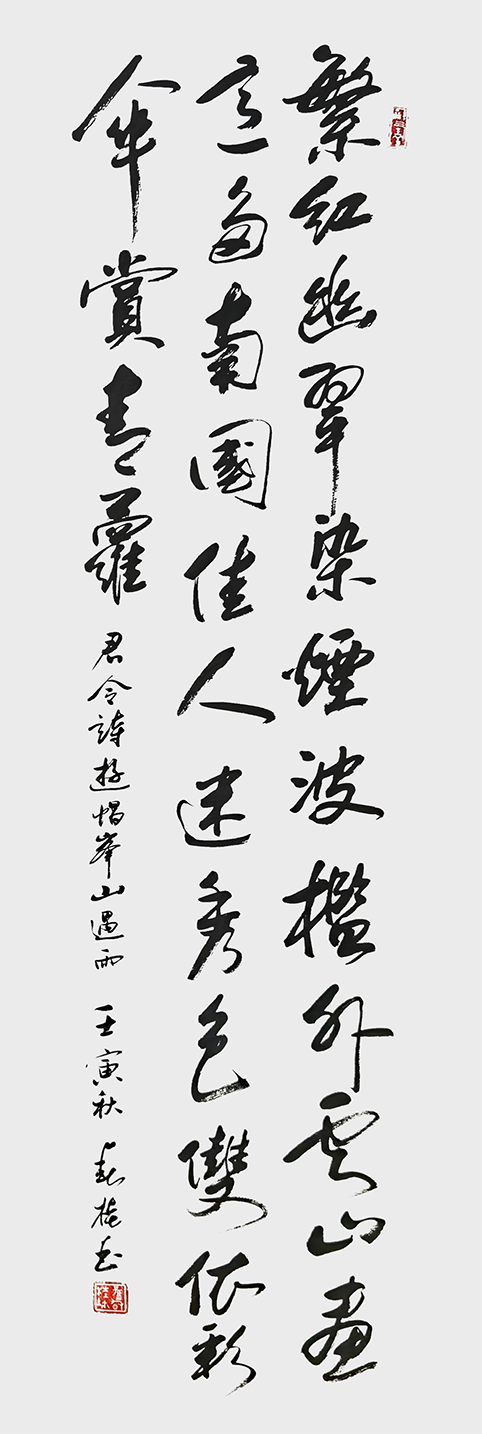 繁紅幽翠染煙波檻外雲山畫
意多南國佳人迷秀色雙依彩
伞賞青蘿 君令詩遊帽峯山遇雨 壬寅秋